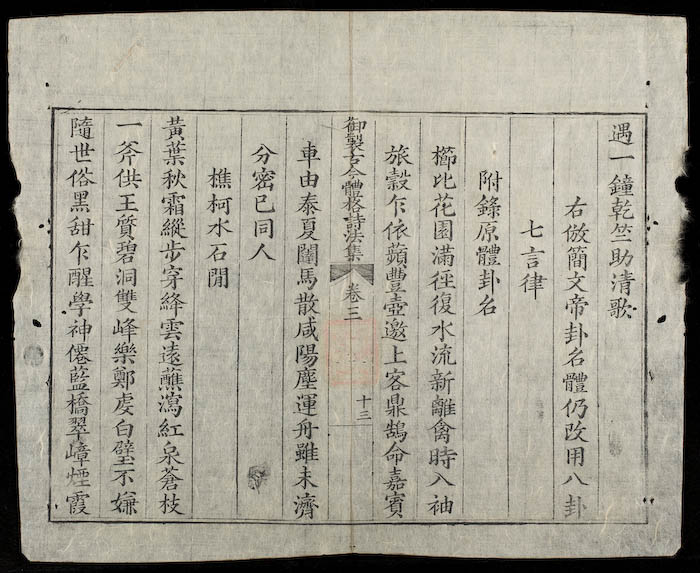 遇一鐘乾竺助清歌
右倣簡文帝卦名體仍改用八卦
七言律
附錄原體卦名
櫛比花園滿徑復水流新離禽時入袖
旅穀乍依蘋豐壺邀上客鼎鵠命嘉賓
御製古今體格詩法集
卷三
十三
車由泰夏闥馬散咸陽塵運舟雖未濟
分密已同人
樵柯水石閒
黃葉秋霜縱步穿絳雲遠蘸瀉紅泉蒼枝
一斧供王質碧洞雙峰樂鄭虔白璧不嫌
隨世俗黑甜乍醒學神僊藍橋翠嶂煙霞